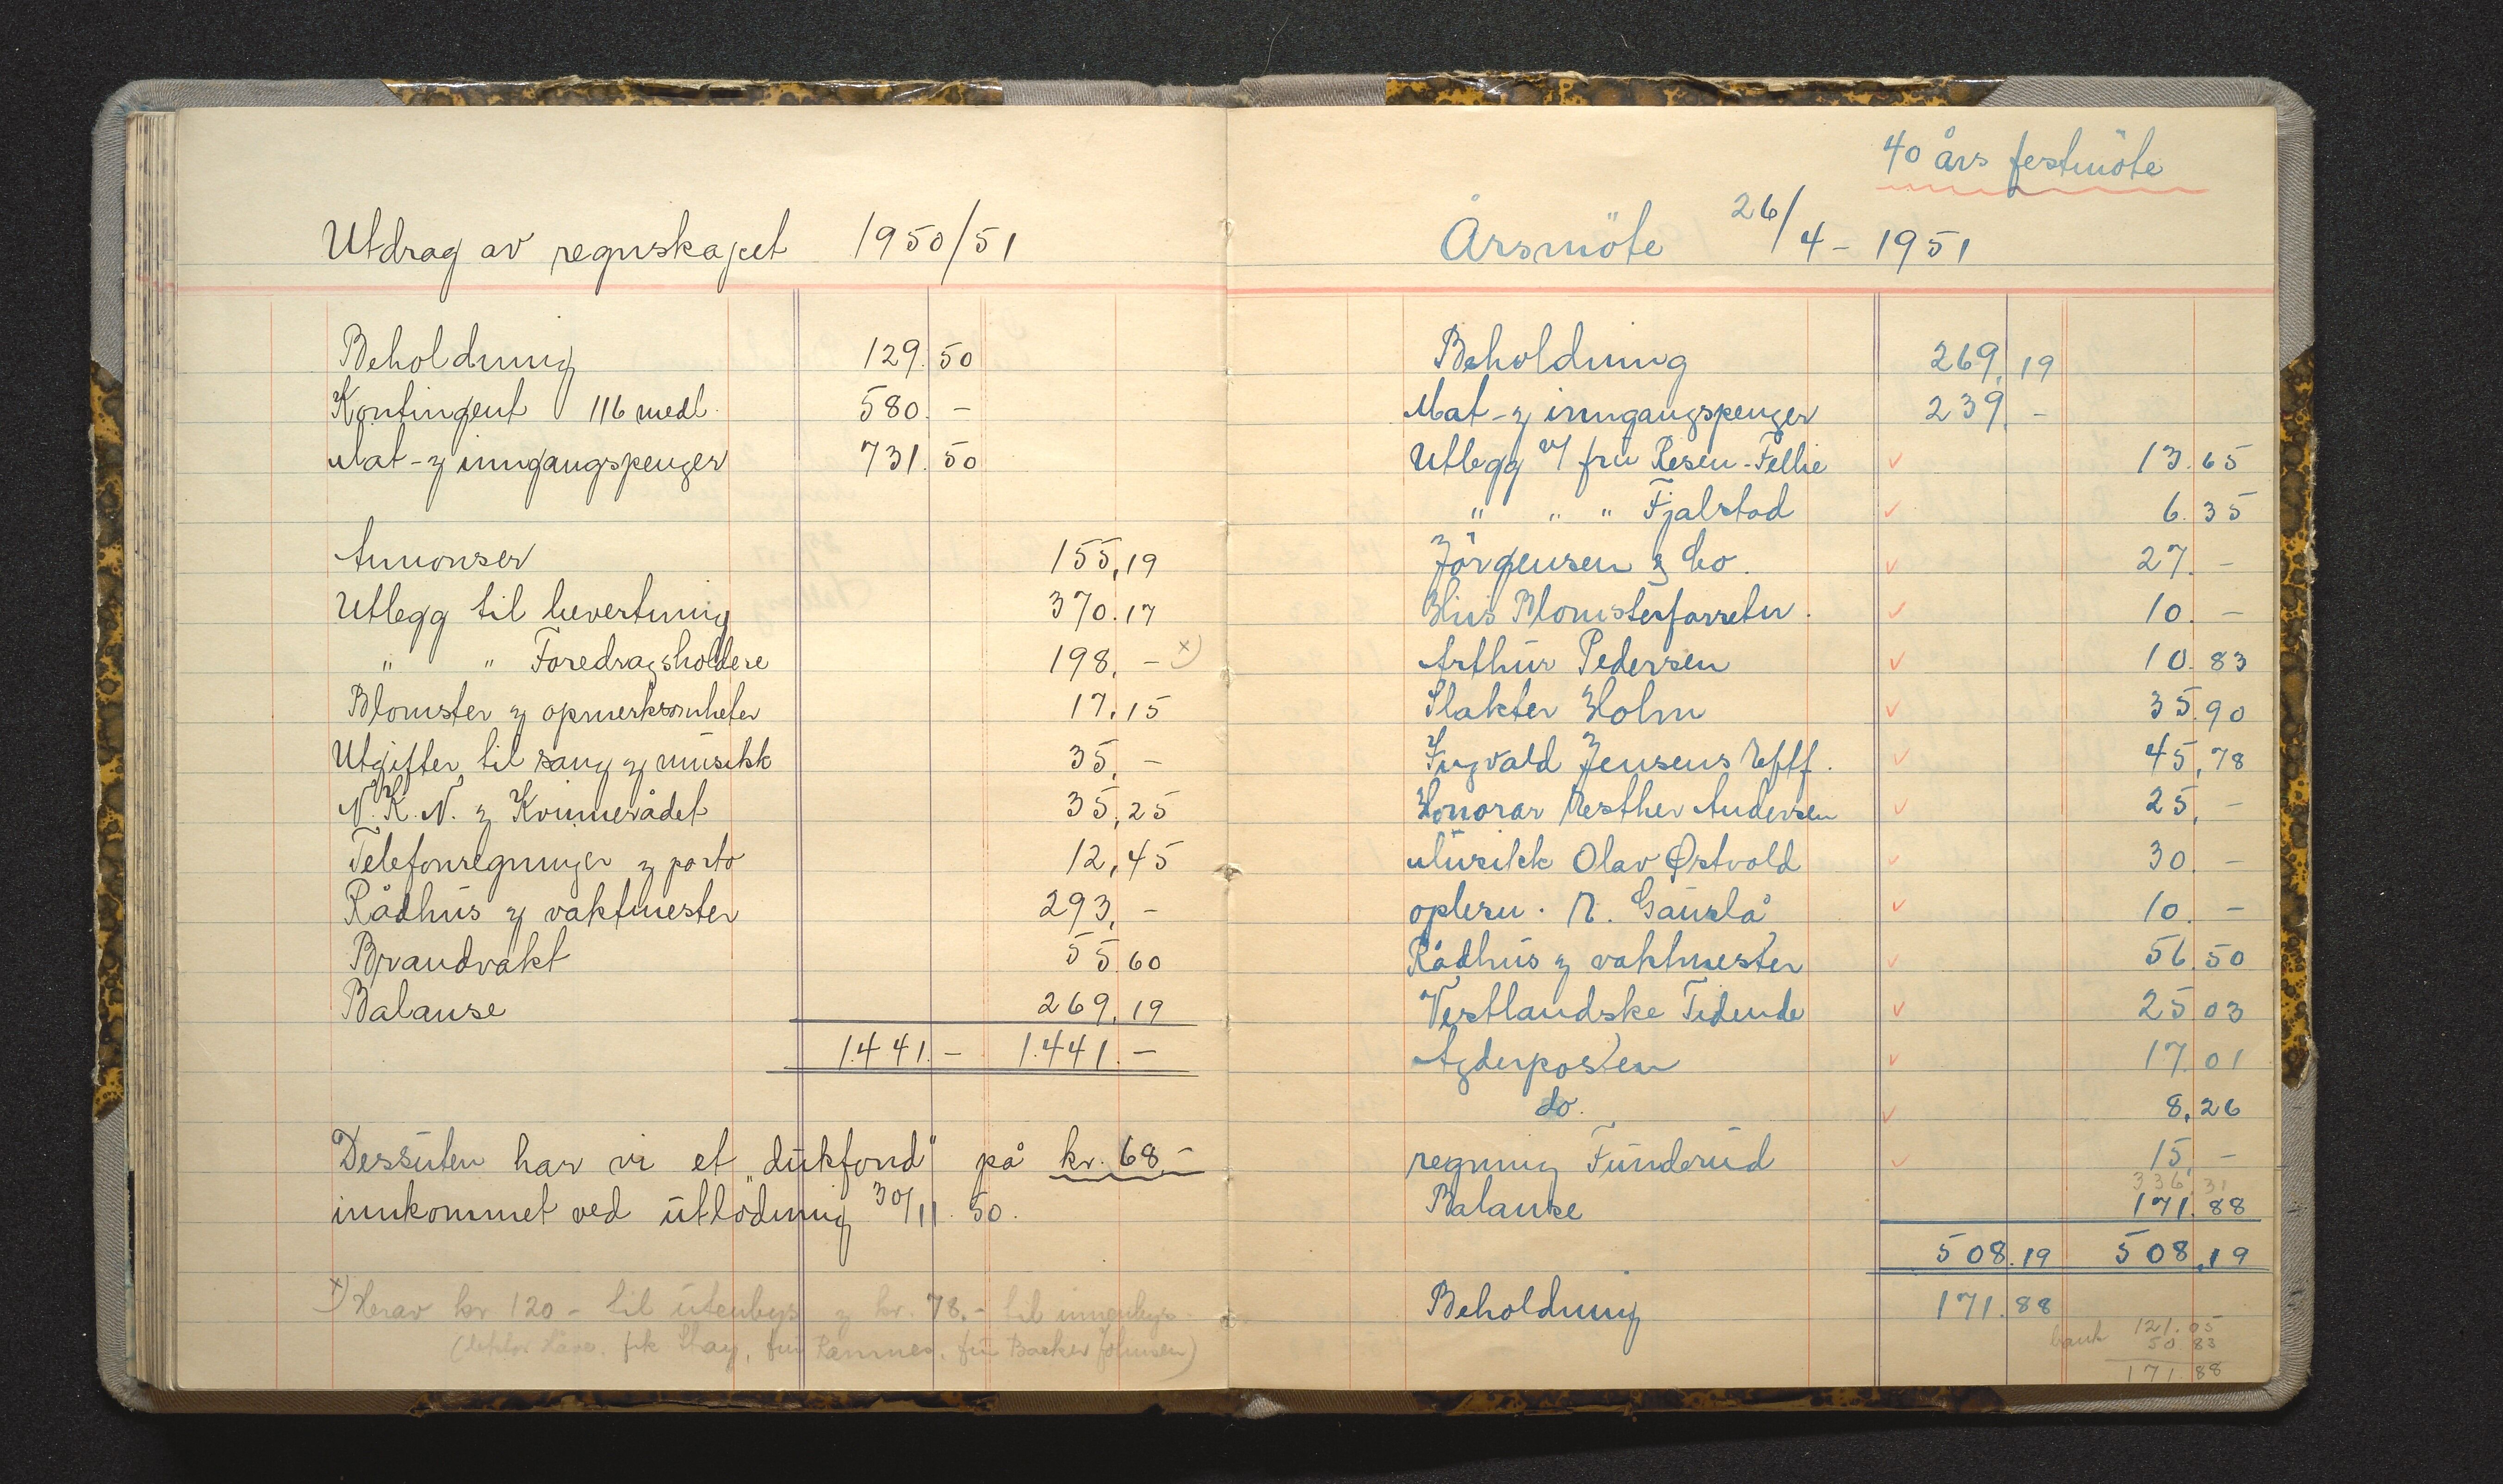 Utdrag av regnskapet 1950/51
Beholdning 129.50
Kontingent 116 medl. 580. -
Mat- og inngangspenger 731.50
Annonser 155,19
Utlegg til bevertning 370.17
" " Foredragsholdere 198, - x)
Blomster og opmerksomheter 17,15
Utgifter til sang og musikk 35, -
N.K.N. og Kvinnerådet 35,25
Telefonregninger og porto 12,45
Rådhus og vaktmester 293, -
Brandvakt 55 60
Balanse 269,19
1441.- 1.441.-
Dessuten har vi et "dukfond" på kr. 68,-
innkommet ved utlodning 30/11. 50.
x) Herav kr 120 - til utenbys og kr. 78.- til innenbys-
(lektor frk fru fru Backer Johnsen)
40 års festmöte
Årsmöte 26/4 - 1951
Beholdning 269,19
Mat- og inngangspenger 239, -
Utlegg v/ fru Resen-Fellie 13.65
" " " Fjalstad 6.35
Jörgensen & Co. 27. -
Hus Blomsterforretn. 10. -
Arthur Pedersen 10.83
Slakter Holm 35.90
Ingvald Jensens Eftf. 45,78
Honorar Esther Andersen 25, -
Musikk Olav Østvold 30. -
oplesn. R. Gauslå 10. -
Rådhus og vaktmester 56.50
Vestlandske Tidende 25 03
Agderposten 17.01
do. 8,26
regning Funderud 15, -
336,31
Balanse 171.88
508.19 508,19
Beholdning 171.88
bank 121.05
50 83
171.88